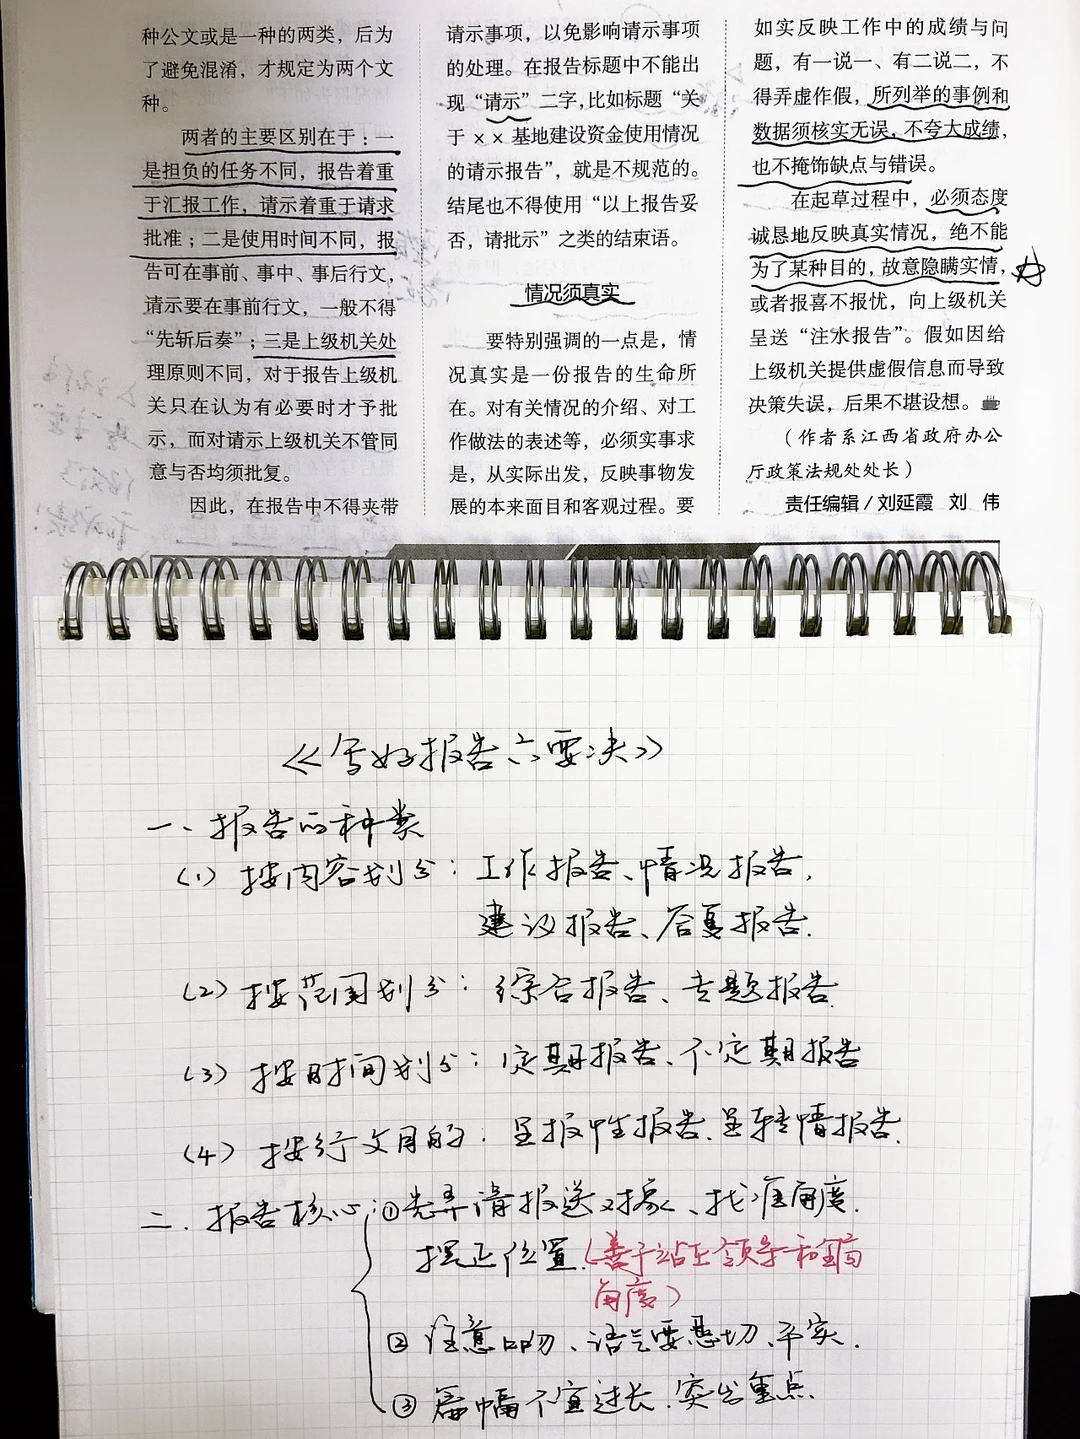 种公文或是一种的两类，后为
了避免混淆，才规定为两个文
种。
两者的主要区别在于：一
是担负的任务不同，报告着重
于汇报工作，请示着重于请求
批准；二是使用时间不同，报
告可在事前、事中、事后行文，
请示要在事前行文，一般不得
“先斩后奏”；三是上级机关处
理原则不同，对于报告上级机
关只在认为有必要时才予批
示，而对请示上级机关不管同
意与否均须批复。
因此，在报告中不得夹带
请示事项，以免影响请示事项
的处理。在报告标题中不能出
现“请示”二字，比如标题“关
于××基地建设资金使用情况
的请示报告”，就是不规范的。
结尾也不得使用“以上报告妥
否，请批示”之类的结束语。
情况须真实
要特别强调的一点是，情
况真实是一份报告的生命所
在。对有关情况的介绍、对工
作做法的表述等，必须实事求
是，从实际出发，反映事物发
展的本来面目和客观过程。要
如实反映工作中的成绩与问
题，有一说一、有二说二，不
得弄虚作假，所列举的事例和
数据须核实无误，不夸大成绩，
也不掩饰缺点与错误。
在起草过程中，必须态度
诚恳地反映真实情况，绝不能
为了某种目的，故意隐瞒实情，
或者报喜不报忧，向上级机关
呈送“注水报告”。假如因给
上级机关提供虚假信息而导致
决策失误，后果不堪设想。
（作者系江西省政府办公
厅政策法规处处长）
责任编辑/刘延霞 刘 伟
《写好报告六要决》
一、报告的种类
（1）按内容划分：工作报告、情况报告，
建议报告、答复报告.
（2）按范围划分：综合报告、专题报告.
（3）按时间划分：定期报告、不定期报告
（4）按行文目的：呈报性报告、呈转情报告.
二. 报告核心：①先弄清报送对象、找准角度.
摆正位置.（善于站在领导和全局
角度）
② 注意口吻、语气要恳切、平实.
③ 篇幅不宜过长.突出重点.